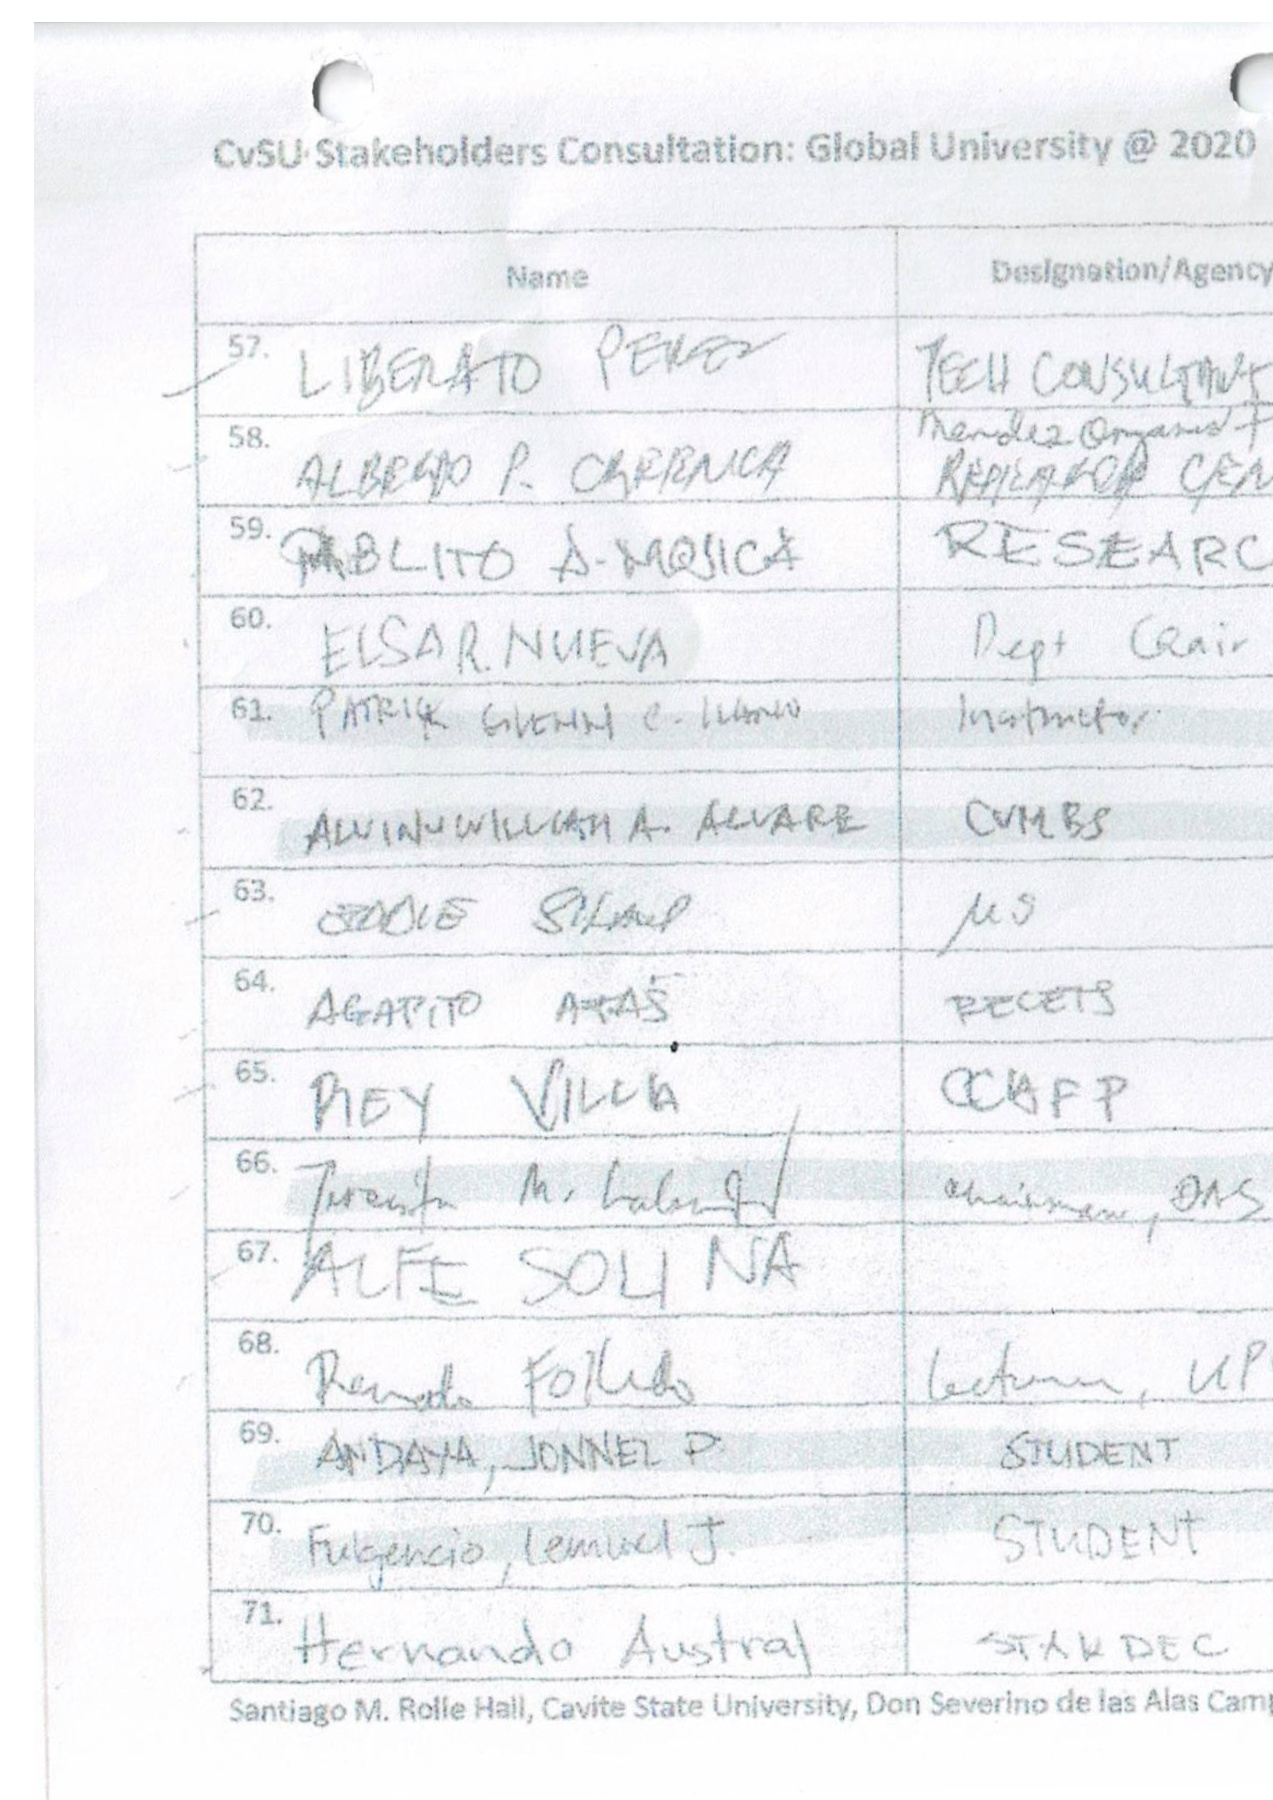 CvSU Stakeholders Consultation: Global University @ 2020
Name Designation/Agency
57. LIBERATO PEREZ TECH CONSULTANT
58. ALBERTO P. Mendez Organic
59. PABLITO A. MOJICA RESEARC
60. ELSA R. NUEVA Dept Chair
61. PATRICK GLENN C. ILANO Instructor
62. ALVIN WILLIAM A. ALVARE CVMBS
63. EDDIE
64. AGAPITO RECETS
65. REY VILLA CCAFP
66. M. Chairman, DAS
67. ALFE SOLINA
68. Renato Folledo Lecturer, UP
69. ANDAYA, JONNEL P. STUDENT
70. Fulgencio, Lemuel J. STUDENT
71. Hernando Austral STAKDEC
Santiago M. Rolle Hall, Cavite State University, Don Severino de las Alas Camp